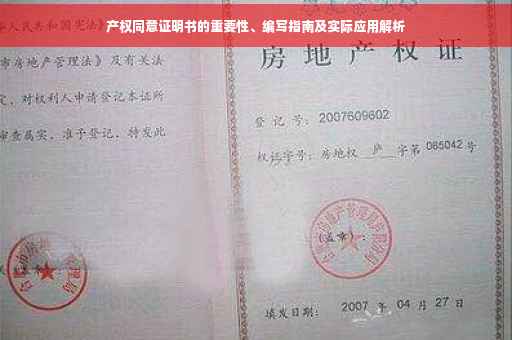 产权同意证明书的重要性、编写指南及实际应用解析
人民共和国宪法》
市房地产管理法》及有关法
定，对权利人申请登记本证所
审查属实，准予登记，特发此
房地产权证
登记号：2007609602
权证字号：房地权 庐 字第 085042 号
(盖章)：
填发日期：2007 年 04 月 27 日